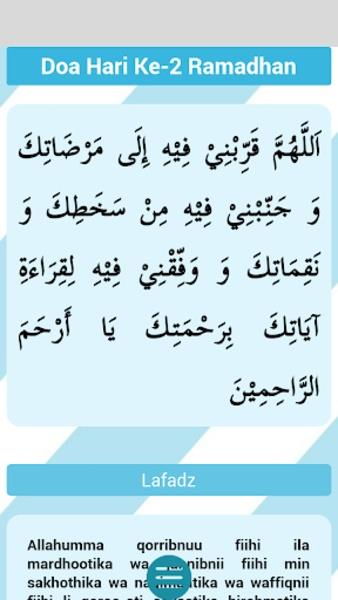 Doa Hari Ke-2 Ramadhan
اَللَّهُمَّ قَرِّبْنِيْ فِيْهِ إِلَى مَرْضَاتِكَ
وَ جَنِّبْنِيْ فِيْهِ مِنْ سَخَطِكَ وَ
نَقِمَاتِكَ وَ وَفِّقْنِيْ فِيْهِ لِقِرَاءَةِ
آيَاتِكَ بِرَحْمَتِكَ يَا أَرْحَمَ
الرَّاحِمِيْنَ
Lafadz
Allahumma qorribnuu fiihi ila
mardhootika wa fiihi min
sakhothika wa wa waffiqnii